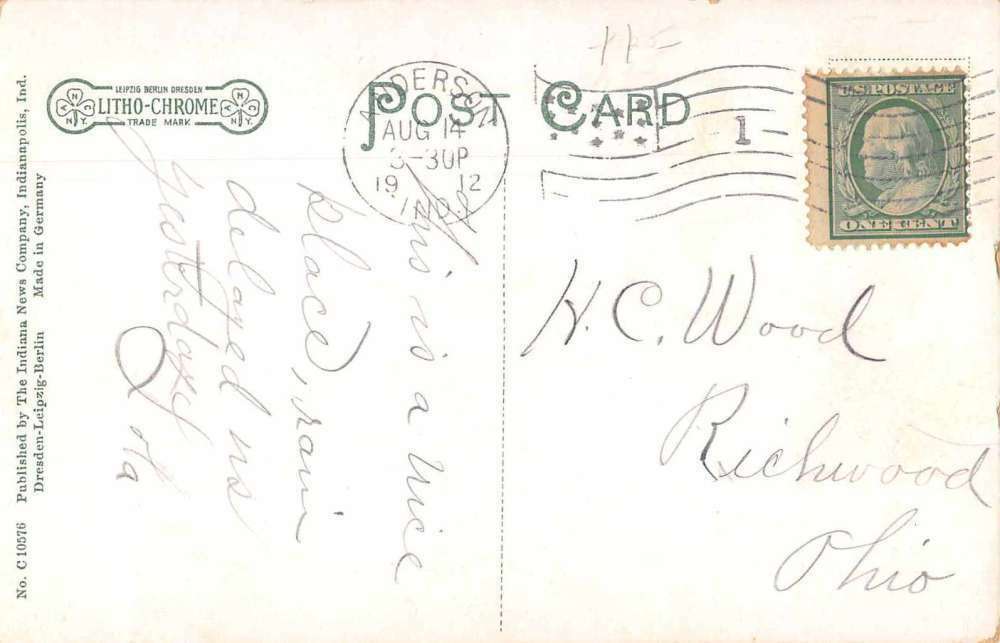 LEIPZIG BERLIN DRESDEN
LITHO-CHROME
TRADE MARK
A N C
N.Y.
A N C
N.Y.
POST CARD
ANDERSON
AUG 14
3-30P
1912
IND.
1
U.S. POSTAGE
ONE CENT
This is a nice
place, rain
delayed us
yesterday
H. C. Wood
Richwood
Ohio
No. C 10576 Published by The Indiana News Company, Indianapolis, Ind.
Dresden-Leipzig-Berlin Made in Germany